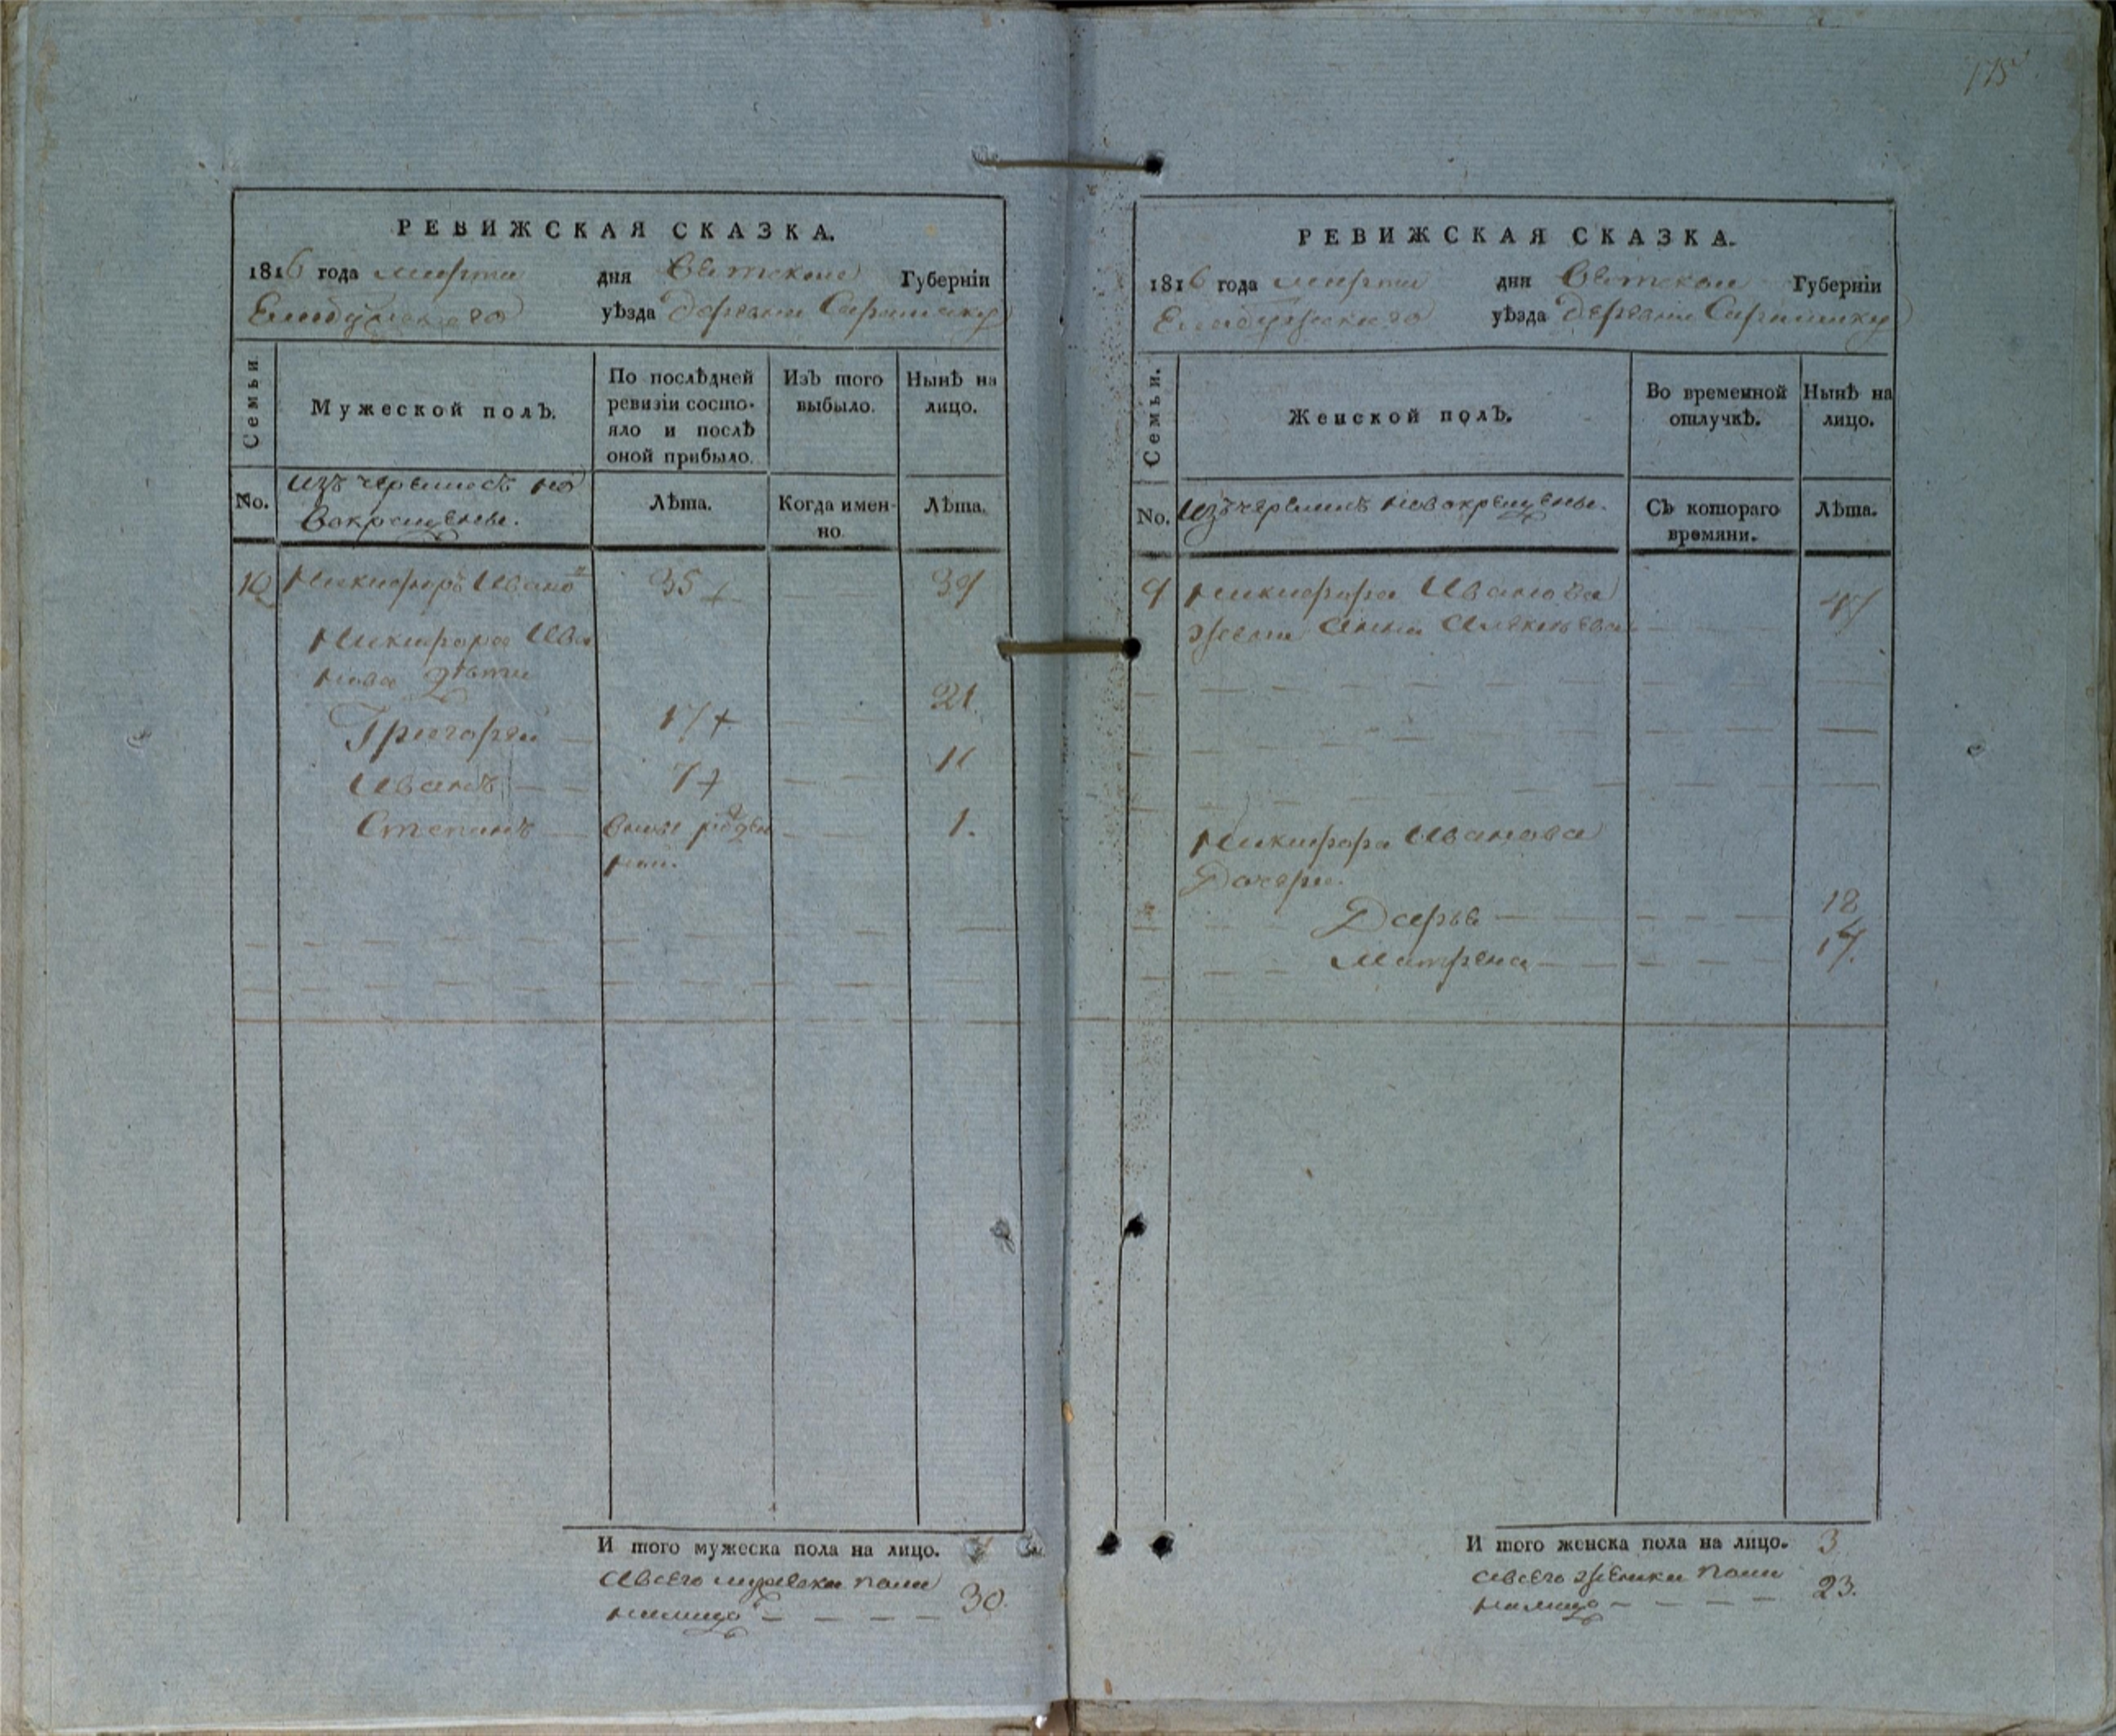 175
РЕВИЖСКАЯ СКАЗКА.
1816 года марта дня Вятской Губерніи
Елабужскаго уѣзда деревни
Семьи.
Мужеской полъ.
По послѣдней ревизіи состо-
яло и послѣ
оной прибыло.
Изъ того
выбыло.
Нынѣ на
лицо.
No.
изъ черемисъ но
вокрещены.
Лѣта.
Когда имен-
но
Лѣта.
10 Никифоръ Ивано 35 39
Никифора Ива
нова дѣти
Григорей 17 21.
Иванъ 7 11
Степанъ вновь рожден 1.
ной.
И того мужеска пола на лицо. 4
а всего мужска пола
налицо 30.
РЕВИЖСКАЯ СКАЗКА.
1816 года марта дня Вятской Губерніи
Елабужскаго уѣзда деревни
Семьи.
Женской полъ.
Во временной
отлучкѣ.
Нынѣ на
лицо.
No.
изъ черемисъ новокрещены.
Съ котораго
времяни.
Лѣта.
Никифора Иванова
жена Анна 47
Никифора Иванова
Дочери.
Дарья 18
Матрена 14.
И того женска пола на лицо. 3
а всего женска пола
налицо 23.